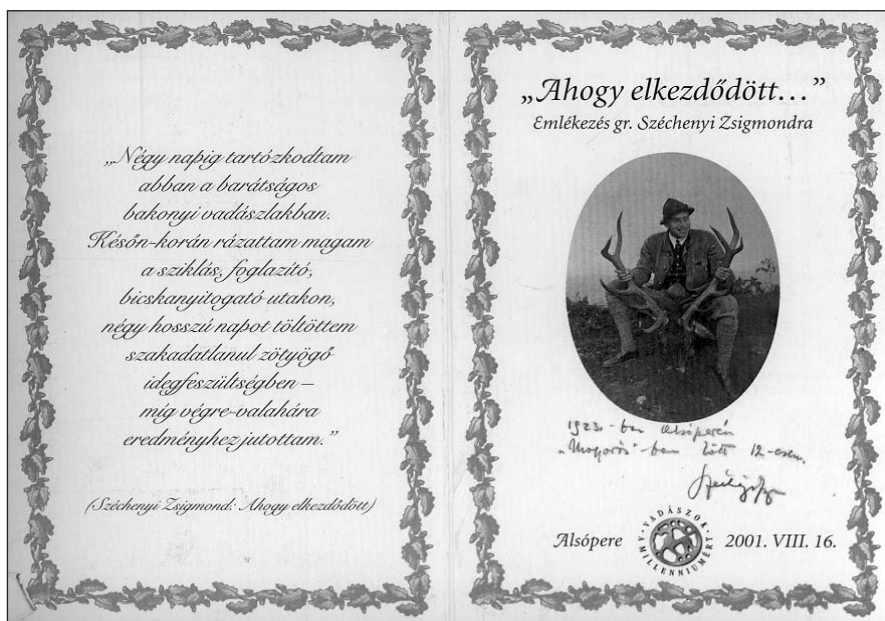 „Négy napig tartózkodtam
abban a barátságos
bakonyi vadászlakban.
Későn-korán rázattam magam
a sziklás, foglazító,
bicskanyitogató utakon,
négy hosszú napot töltöttem
szakadatlanul zötyögő
idegfeszültségben –
míg végre-valahára
eredményhez jutottam.”
(Széchenyi Zsigmond: Ahogy elkezdődött)
„Ahogy elkezdődött...”
Emlékezés gr. Széchenyi Zsigmondra
1923-ban Alsóperén
„Mogyorós”-ban lőtt 12-esem.
Alsópere
VADÁSZOK
A MILLENNIUMÉRT
2001. VIII. 16.